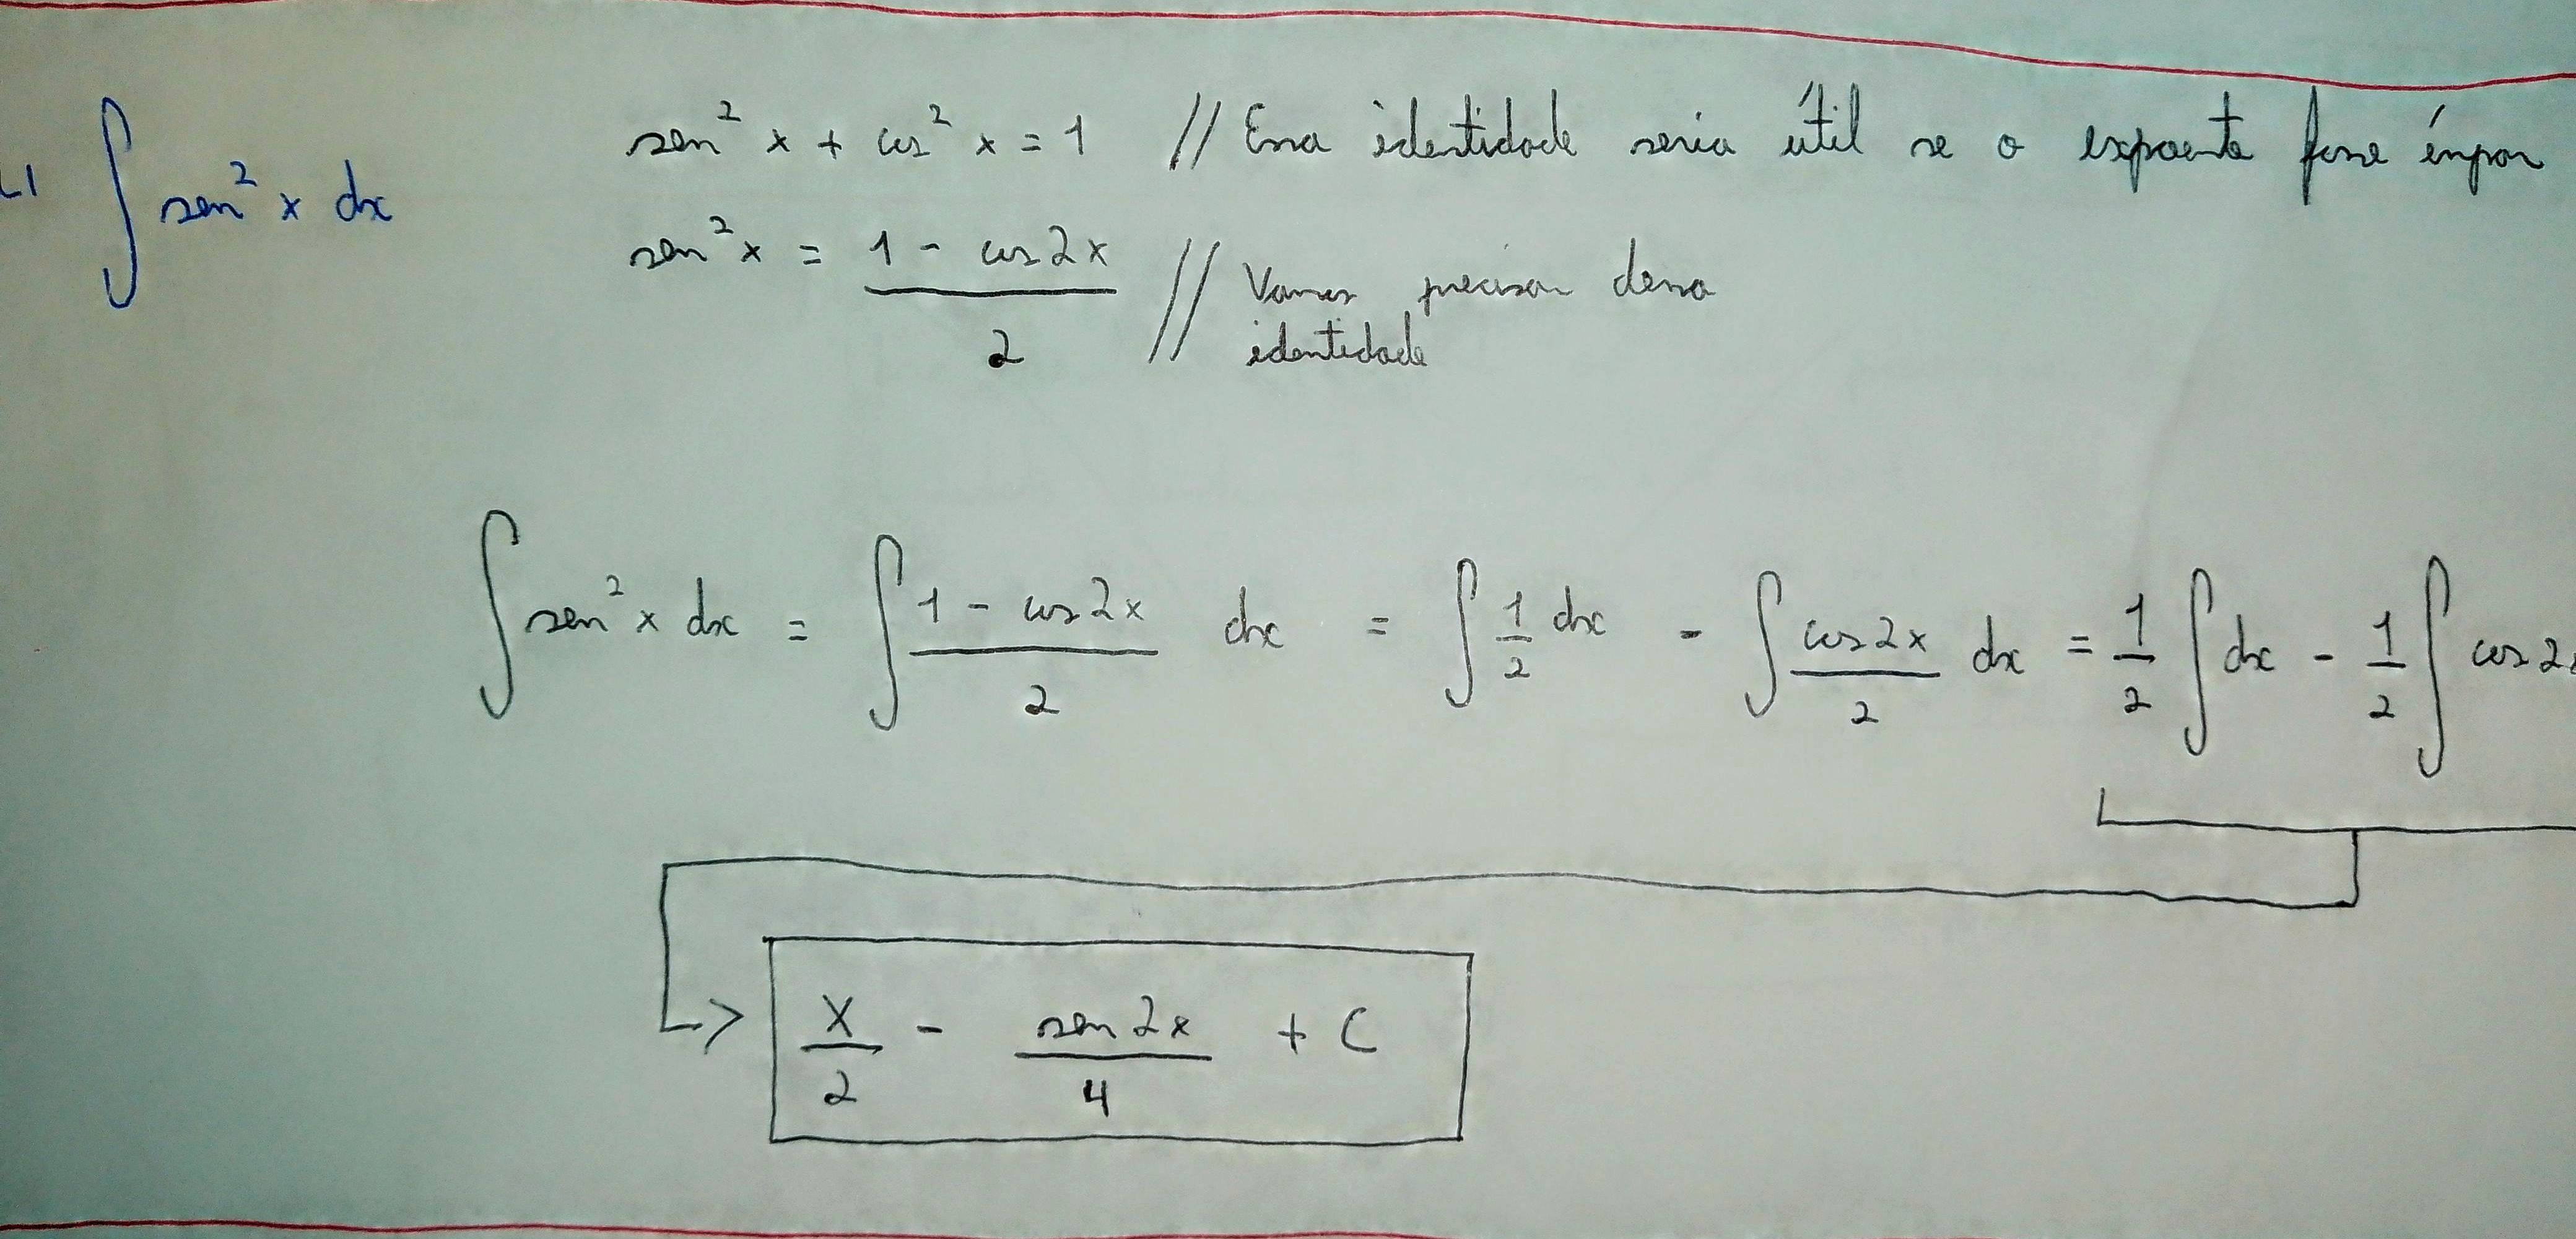 ∫ sen² x dx
sen² x + cos² x = 1 // Essa identidade seria útil se o expoente fosse ímpar
sen² x = (1 - cos 2x)/2 // Vamos precisar dessa
identidade
∫ sen² x dx = ∫ (1 - cos 2x)/2 dx = ∫ 1/2 dx - ∫ (cos 2x)/2 dx = 1/2 ∫ dx - 1/2 ∫ cos 2x
x/2 - (sen 2x)/4 + C